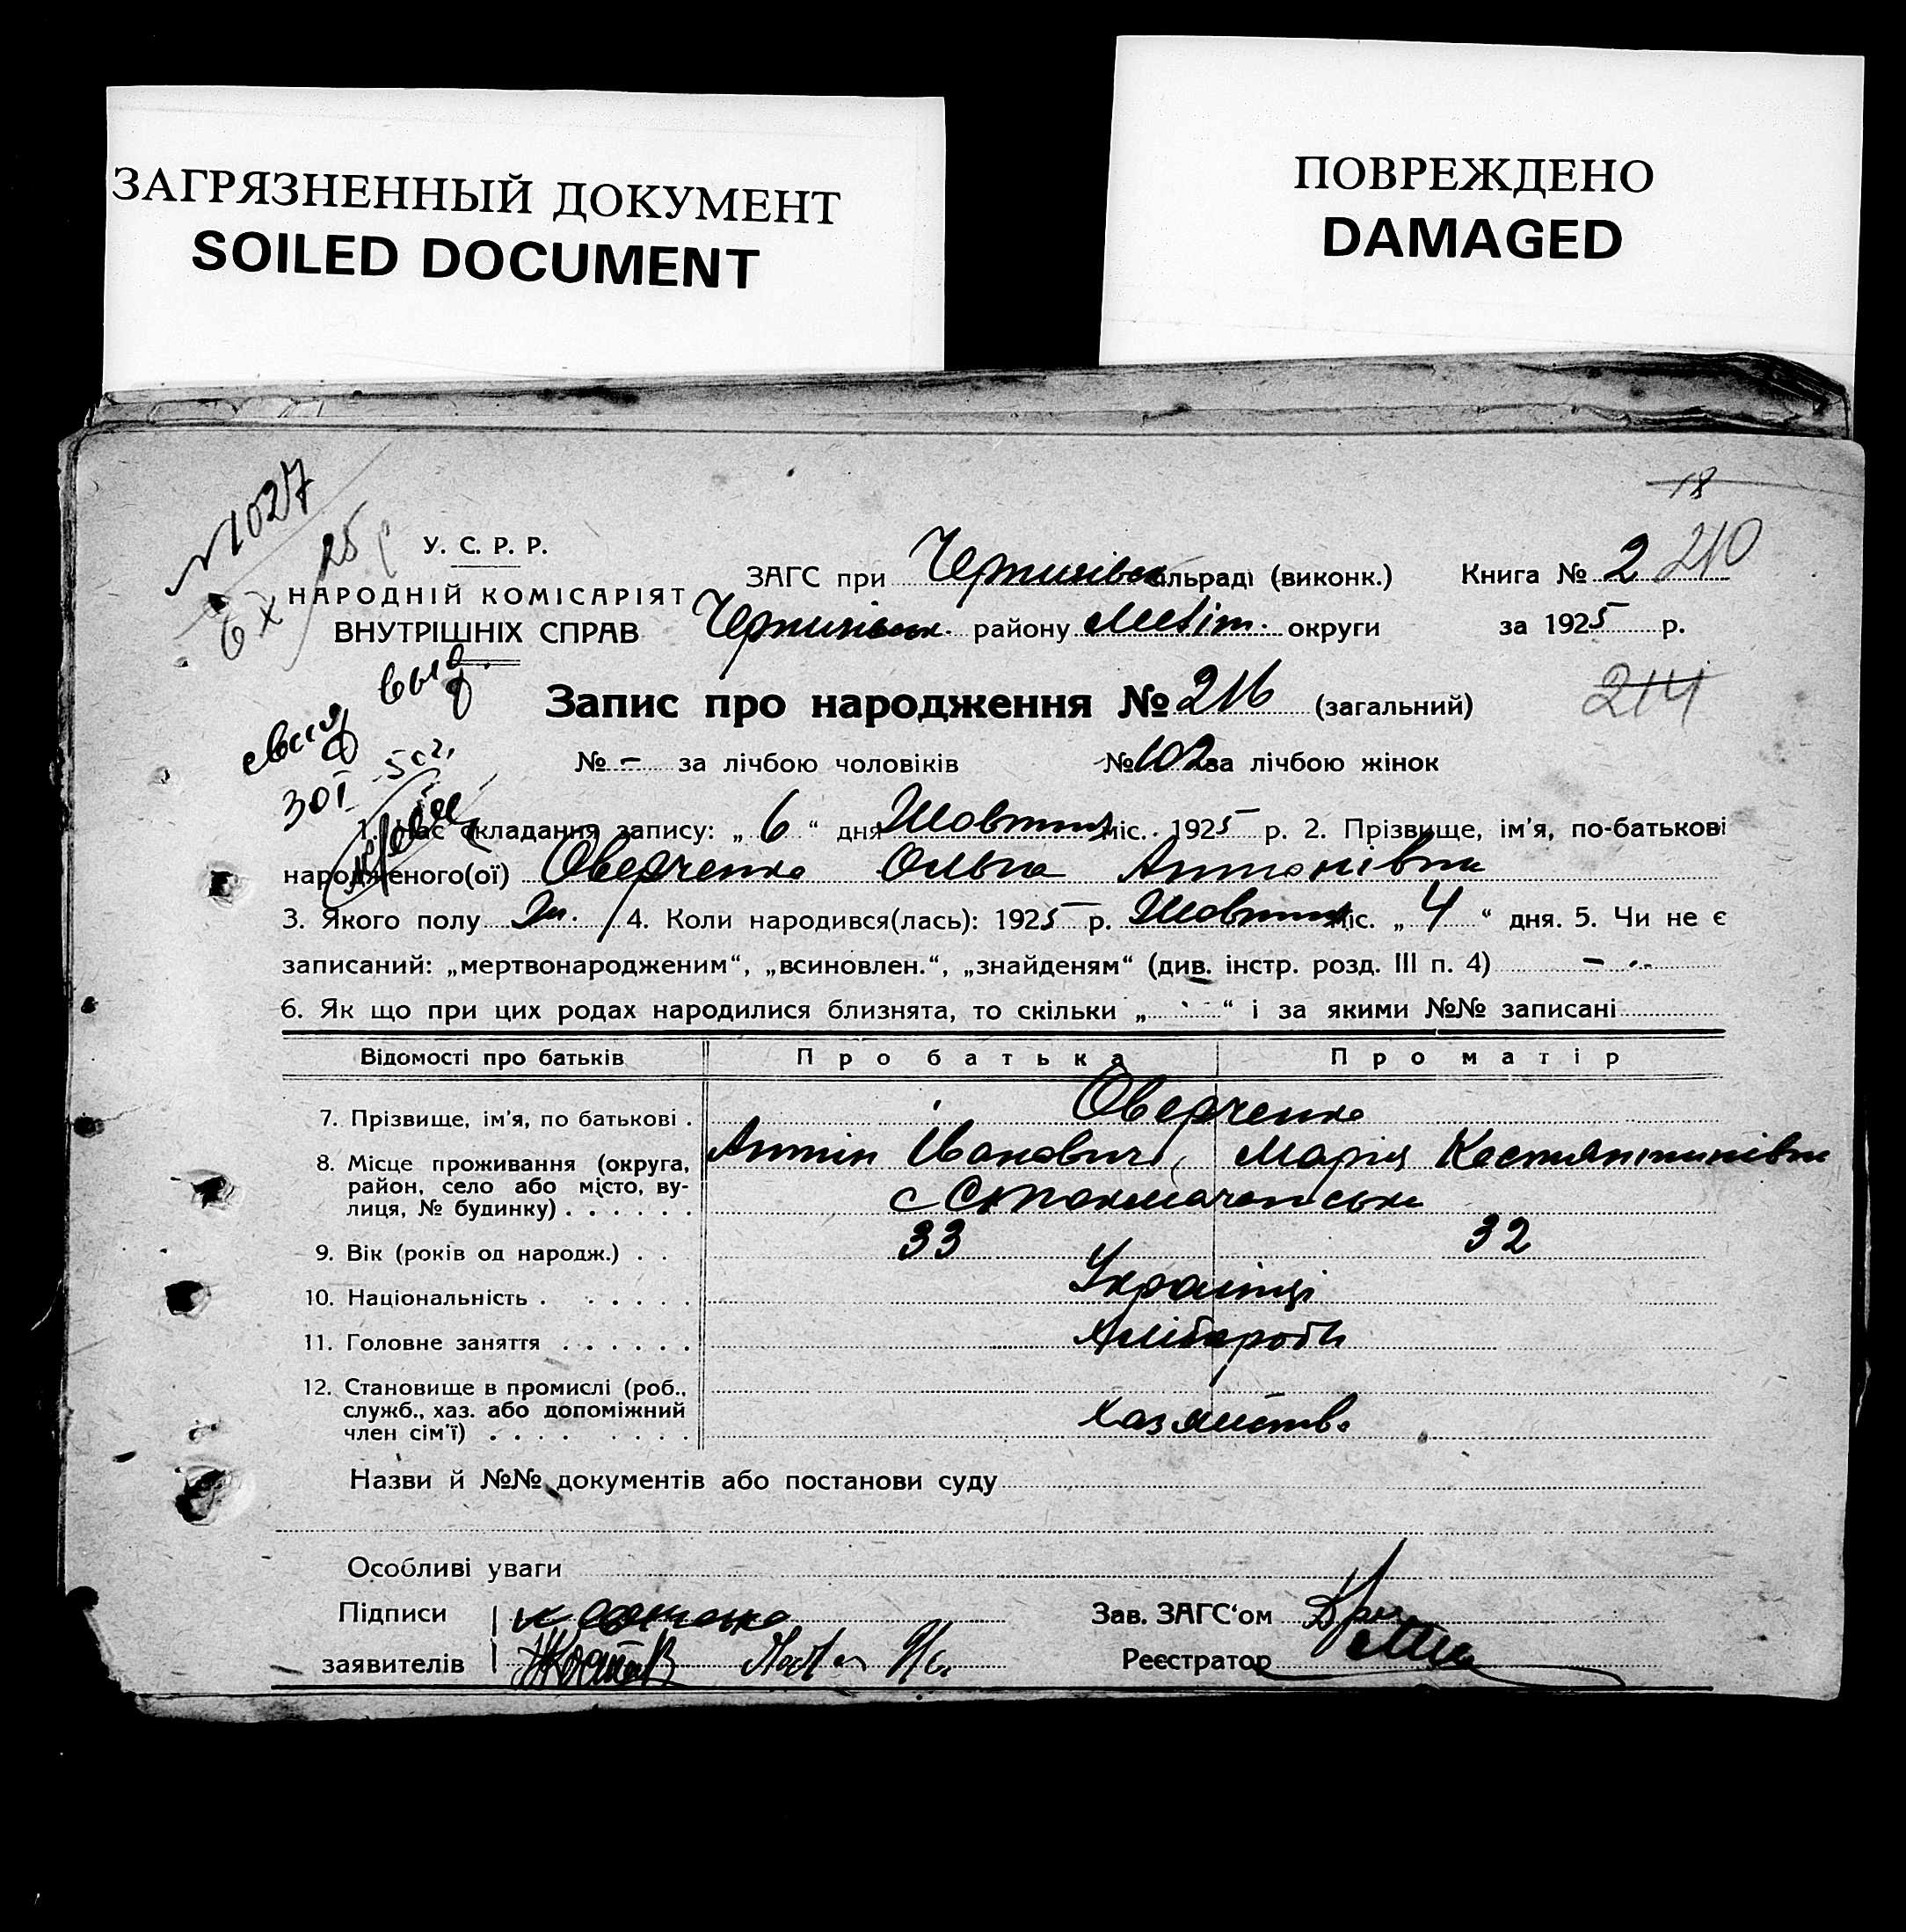 ЗАГРЯЗНЕННЫЙ ДОКУМЕНТ
SOILED DOCUMENT
ПОВРЕЖДЕНО
DAMAGED
18
№ 1027
25
У. С. Р. Р.
НАРОДНІЙ КОМІСАРІЯТ
ВНУТРІШНІХ СПРАВ
ЗАГС при Чернигівськ сільраді (виконк.)
Книга № 2 210
Чернигівськ. району Меліт. округи
за 1925 р.
Запис про народження № 216 (загальний)
214
№ - за лічбою чоловіків № 102 за лічбою жінок
1. Час складання запису: „ 6 “ дня Жовтня міс. 1925 р. 2. Прізвище, ім'я, по-батькові
народженого(ої) Оверченко Ольга Антонівна
3. Якого полу ж. 4. Коли народився(лась): 1925 р. Жовтня міс. „ 4 “ дня. 5. Чи не є
записаний: „мертвонародженим“, „всиновлен.“, „знайденям“ (див. інстр. розд. III п. 4) -
6. Як що при цих родах народилися близнята, то скільки „ “ і за якими №№ записані
Відомості про батьків Про батька Про матір
7. Прізвище, ім'я, по батькові . Оверченко
Антін Іванович, Марія Костянтинівна
8. Місце проживання (округа,
район, село або місто, ву-
лиця, № будинку) . . . . . . с
9. Вік (років од народж.) . . 33 32
10. Національність . . . . . . Українці
11. Головне заняття . . . . . . Хлібороби
12. Становище в промислі (роб.,
служб., хаз. або допоміжний
член сім'ї) . . . . . . . . хазяйство
Назви й №№ документів або постанови суду
Особливі уваги
Підписи
Зав. ЗАГС'ом
заявителів
Реєстратор